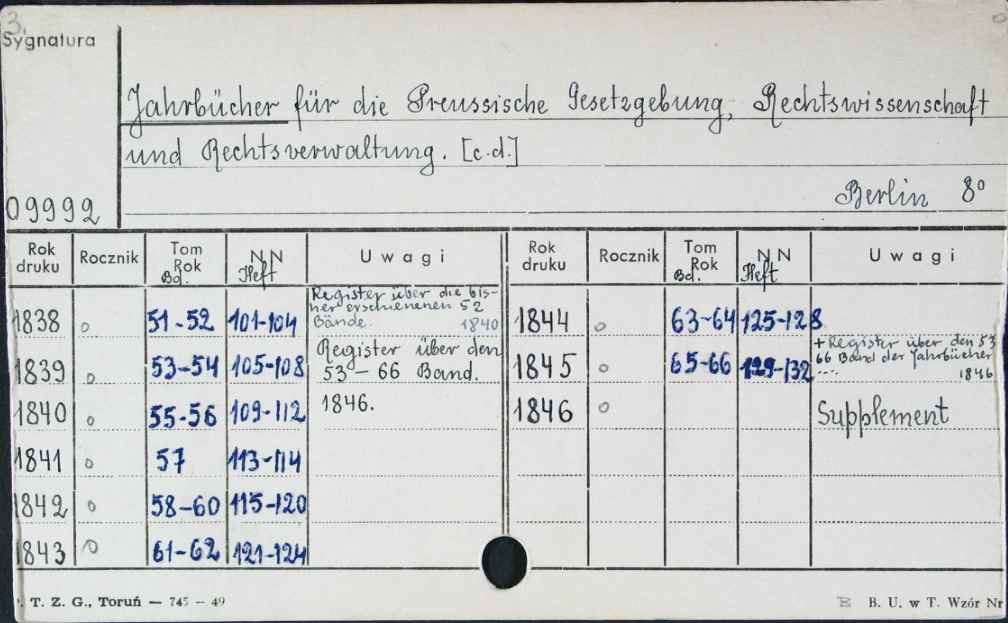 3.
Sygnatura
Jahrbücher für die Preussische Gesetzgebung, Rechtswissenschaft
und Rechtsverwaltung. [c.d.]
Berlin 8°
09992
Rok druku Rocznik Tom Rok Bd. NN Heft Uwagi Rok druku Rocznik Tom Rok Bd. NN Heft Uwagi
1838 o 51-52 101-104 Register über die bis-
her erschienenen 52
Bände. 1840
1839 o 53-54 105-108 Register über den
53-66 Band.
1840 o 55-56 109-112 1846.
1841 o 57 113-114
1842 o 58-60 115-120
1843 o 61-62 121-124
1844 o 63-64 125-128
1845 o 65-66 129-132 + Register über den 53
66 Band der Jahrbücher
.... 1846
1846 o Supplement
T. Z. G., Toruń — 745 — 49
B. U. w T. Wzór Nr